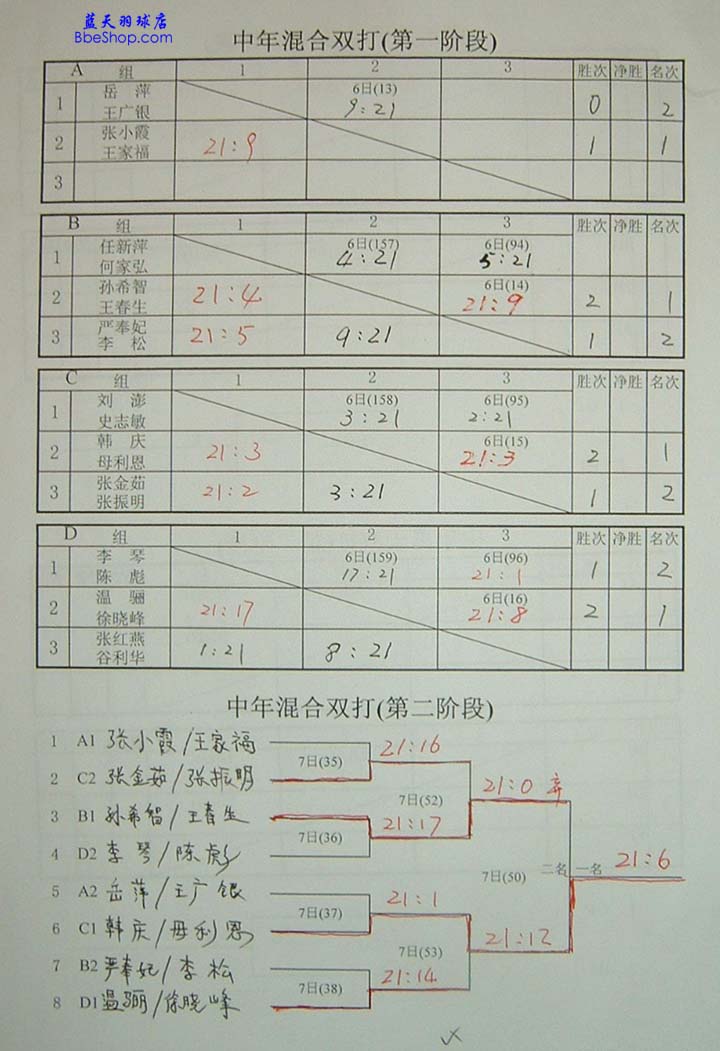 蓝天羽球店
BbeShop.com
中年混合双打(第一阶段)
A 组 1 2 3 胜次 净胜 名次
1 岳 萍 王广银 6日(13) 9:21 0 2
2 张小霞 王家福 21:9 1 1
3
B 组 1 2 3 胜次 净胜 名次
1 任新萍 何家弘 6日(157) 4:21 6日(94) 5:21
2 孙希智 王春生 21:4 6日(14) 21:9 2 1
3 严奉妃 李 松 21:5 9:21 1 2
C 组 1 2 3 胜次 净胜 名次
1 刘 澎 史志敏 6日(158) 3:21 6日(95) 2:21
2 韩 庆 母利恩 21:3 6日(15) 21:3 2 1
3 张金茹 张振明 21:2 3:21 1 2
D 组 1 2 3 胜次 净胜 名次
1 李 琴 陈 彪 6日(159) 17:21 6日(96) 21:1 1 2
2 温 骊 徐晓峰 21:17 6日(16) 21:8 2 1
3 张红燕 谷利华 1:21 8:21
中年混合双打(第二阶段)
1 A1 张小霞/王家福
7日(35) 21:16
2 C2 张金茹/张振明
7日(52) 21:0 弃
3 B1 孙希智/王春生
7日(36) 21:17
4 D2 李琴/陈彪
7日(50) 二名 一名 21:6
5 A2 岳萍/王广银
7日(37) 21:1
6 C1 韩庆/母利恩
7日(53) 21:12
7 B2 严奉妃/李松
7日(38) 21:14
8 D1 温骊/徐晓峰